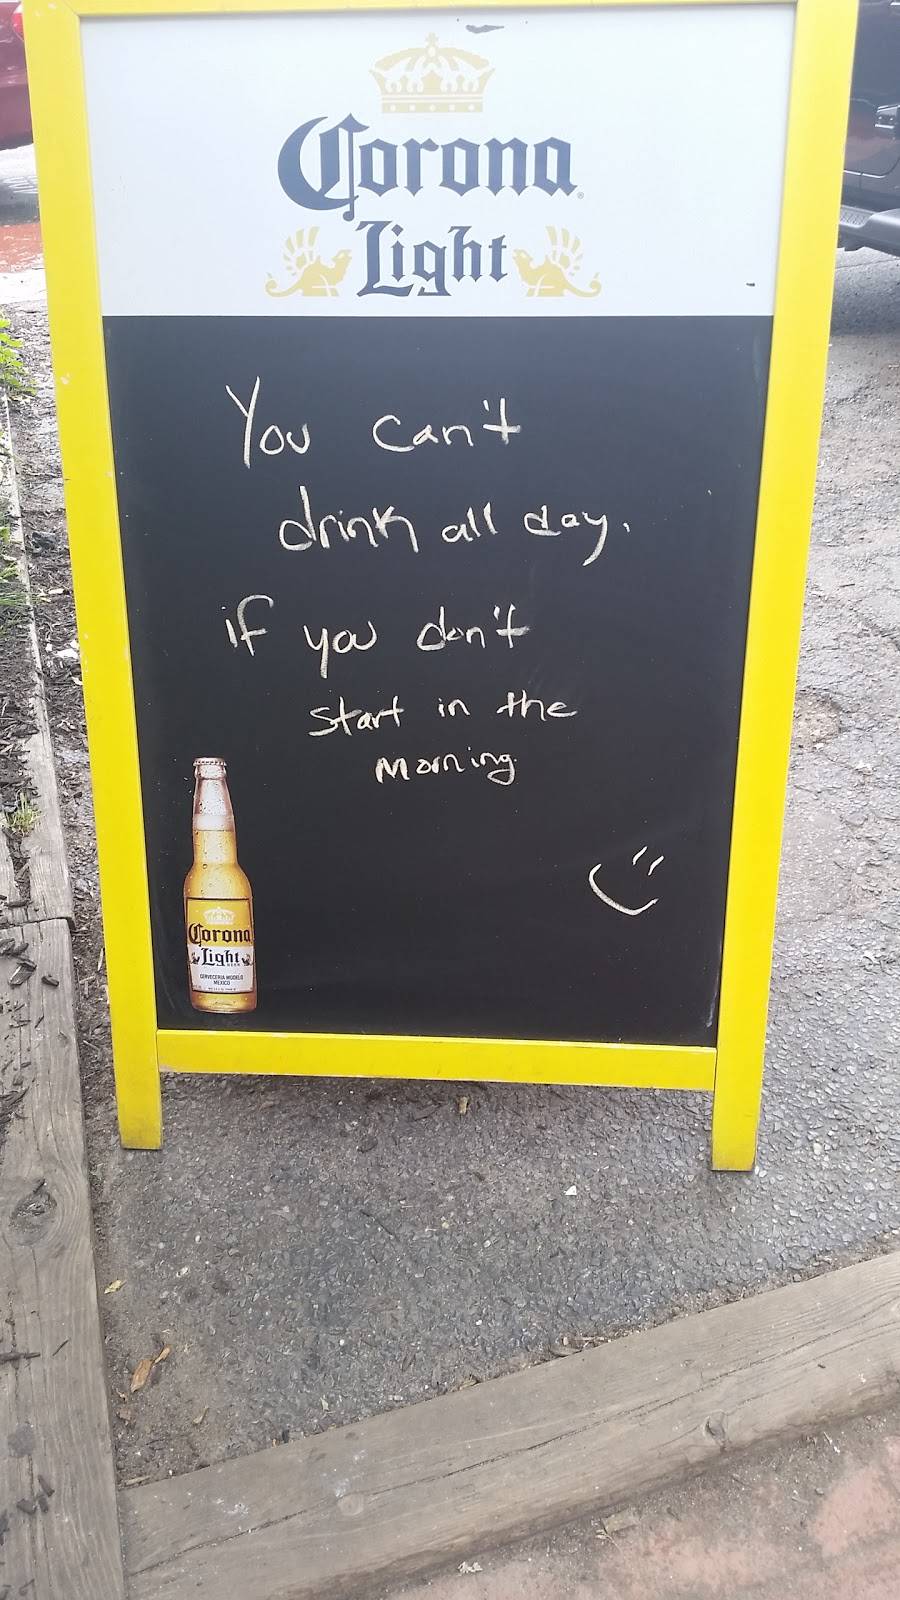 Corona
Light
You can't
drink all day,
if you don't
start in the
morning
Corona
Light
BEER
CERVECERIA MODELO
MEXICO